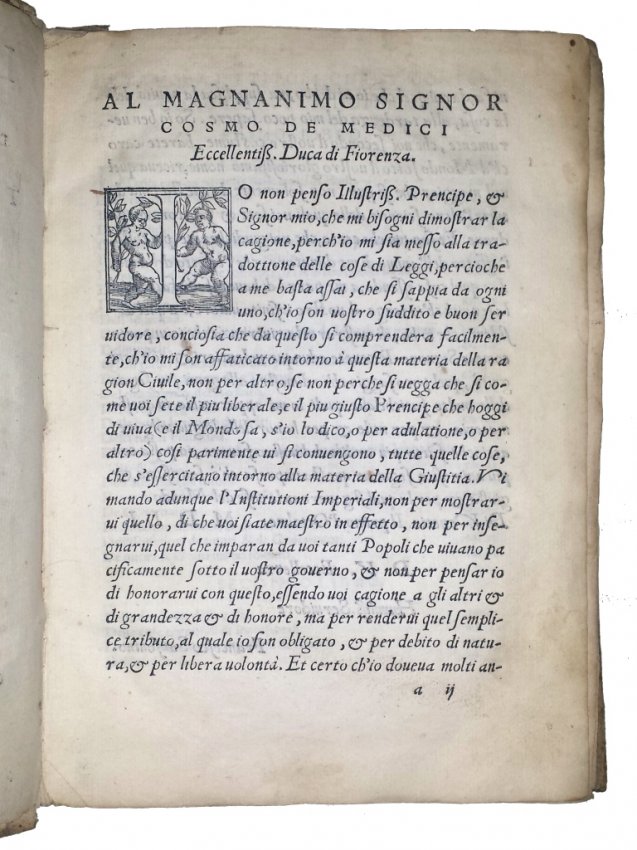 AL MAGNANIMO SIGNOR
COSMO DE MEDICI
Eccellentiß. Duca di Fiorenza.
IO non penso Illustriß. Prencipe, &
Signor mio, che mi bisogni dimostrar la
cagione, perch'io mi sia messo alla tra-
dottione delle cose di Leggi, percioche
a me basta assai, che si sappia da ogni
uno, ch'io son uostro suddito e buon ser
uidore, conciosia che da questo si comprendera facilmen-
te, ch'io mi son affaticato intorno à questa materia della ra
gion Ciuile, non per altro, se non perche si uegga che si co-
me uoi sete il piu liberale, e il piu giusto Prencipe che hoggi
di uiua (e il Mondo sa, s'io lo dico, o per adulatione, o per
altro) cosi parimente ui si conuengono, tutte quelle cose,
che s'essercitano intorno alla materia della Giustitia. Vi
mando adunque l'Institutioni Imperiali, non per mostrar-
ui quello, di che uoi siate maestro in effetto, non per inse-
gnarui, quel che imparan da uoi tanti Popoli che uiuano pa
cificamente sotto il uostro governo, & non per pensar io
di honorarui con questo, essendo uoi cagione a gli altri &
di grandezza & di honore, ma per renderui quel sempli-
ce tributo, al quale io son obligato, & per debito di natu-
ra, & per libera uolontà. Et certo ch'io doueua molti an-
a ij